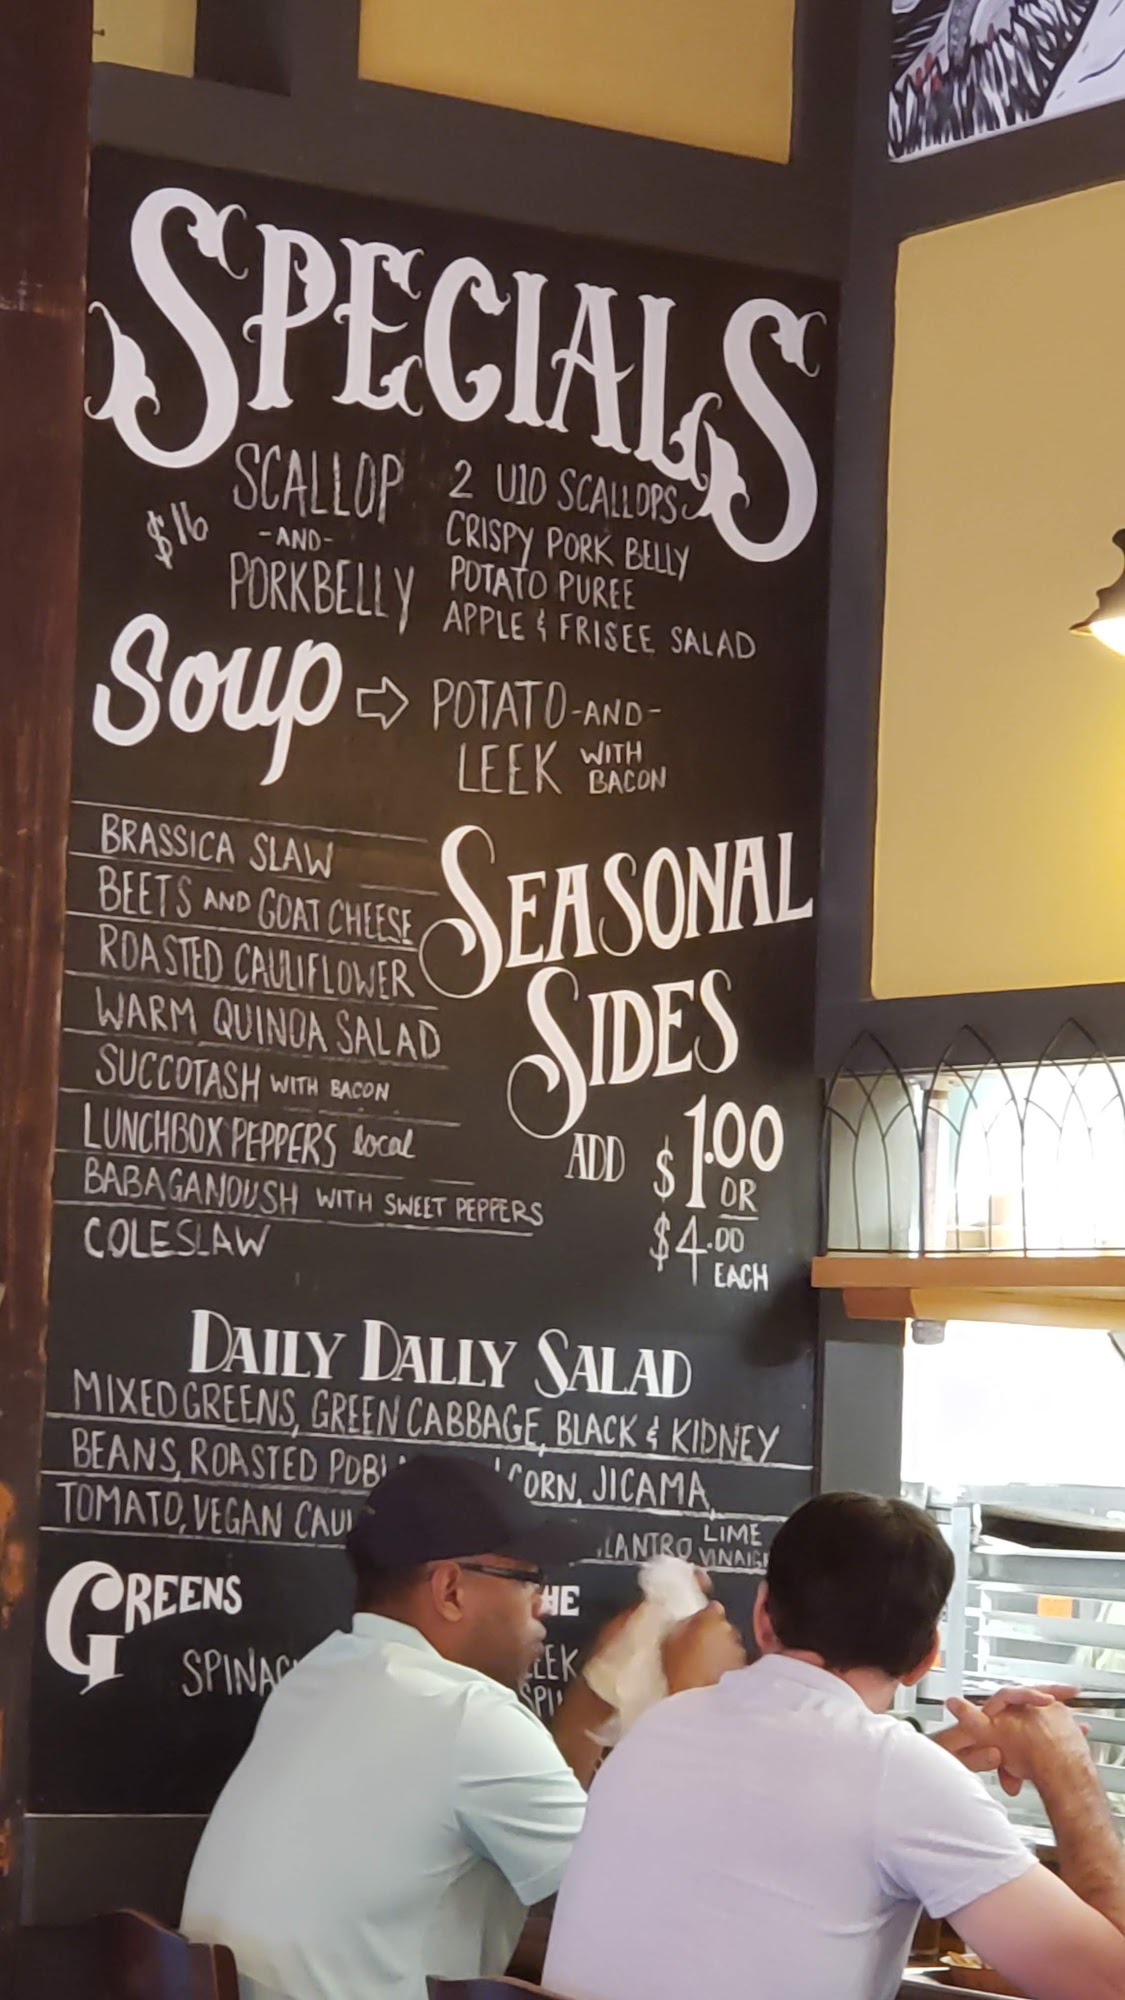 SPECIALS
$16
SCALLOP
-AND-
PORKBELLY
2 U10 SCALLOPS
CRISPY PORK BELLY
POTATO PUREE
APPLE & FRISEE SALAD
Soup ⇨ POTATO -AND-
LEEK WITH
BACON
BRASSICA SLAW
BEETS AND GOAT CHEESE
ROASTED CAULIFLOWER
WARM QUINOA SALAD
SUCCOTASH WITH BACON
LUNCHBOX PEPPERS local
BABAGANOUSH WITH SWEET PEPPERS
COLESLAW
SEASONAL
SIDES
ADD $1.00
OR
$4.00
EACH
DAILY DALLY SALAD
MIXED GREENS, GREEN CABBAGE, BLACK & KIDNEY
BEANS, ROASTED CORN, JICAMA,
TOMATO, VEGAN LIME
GREENS